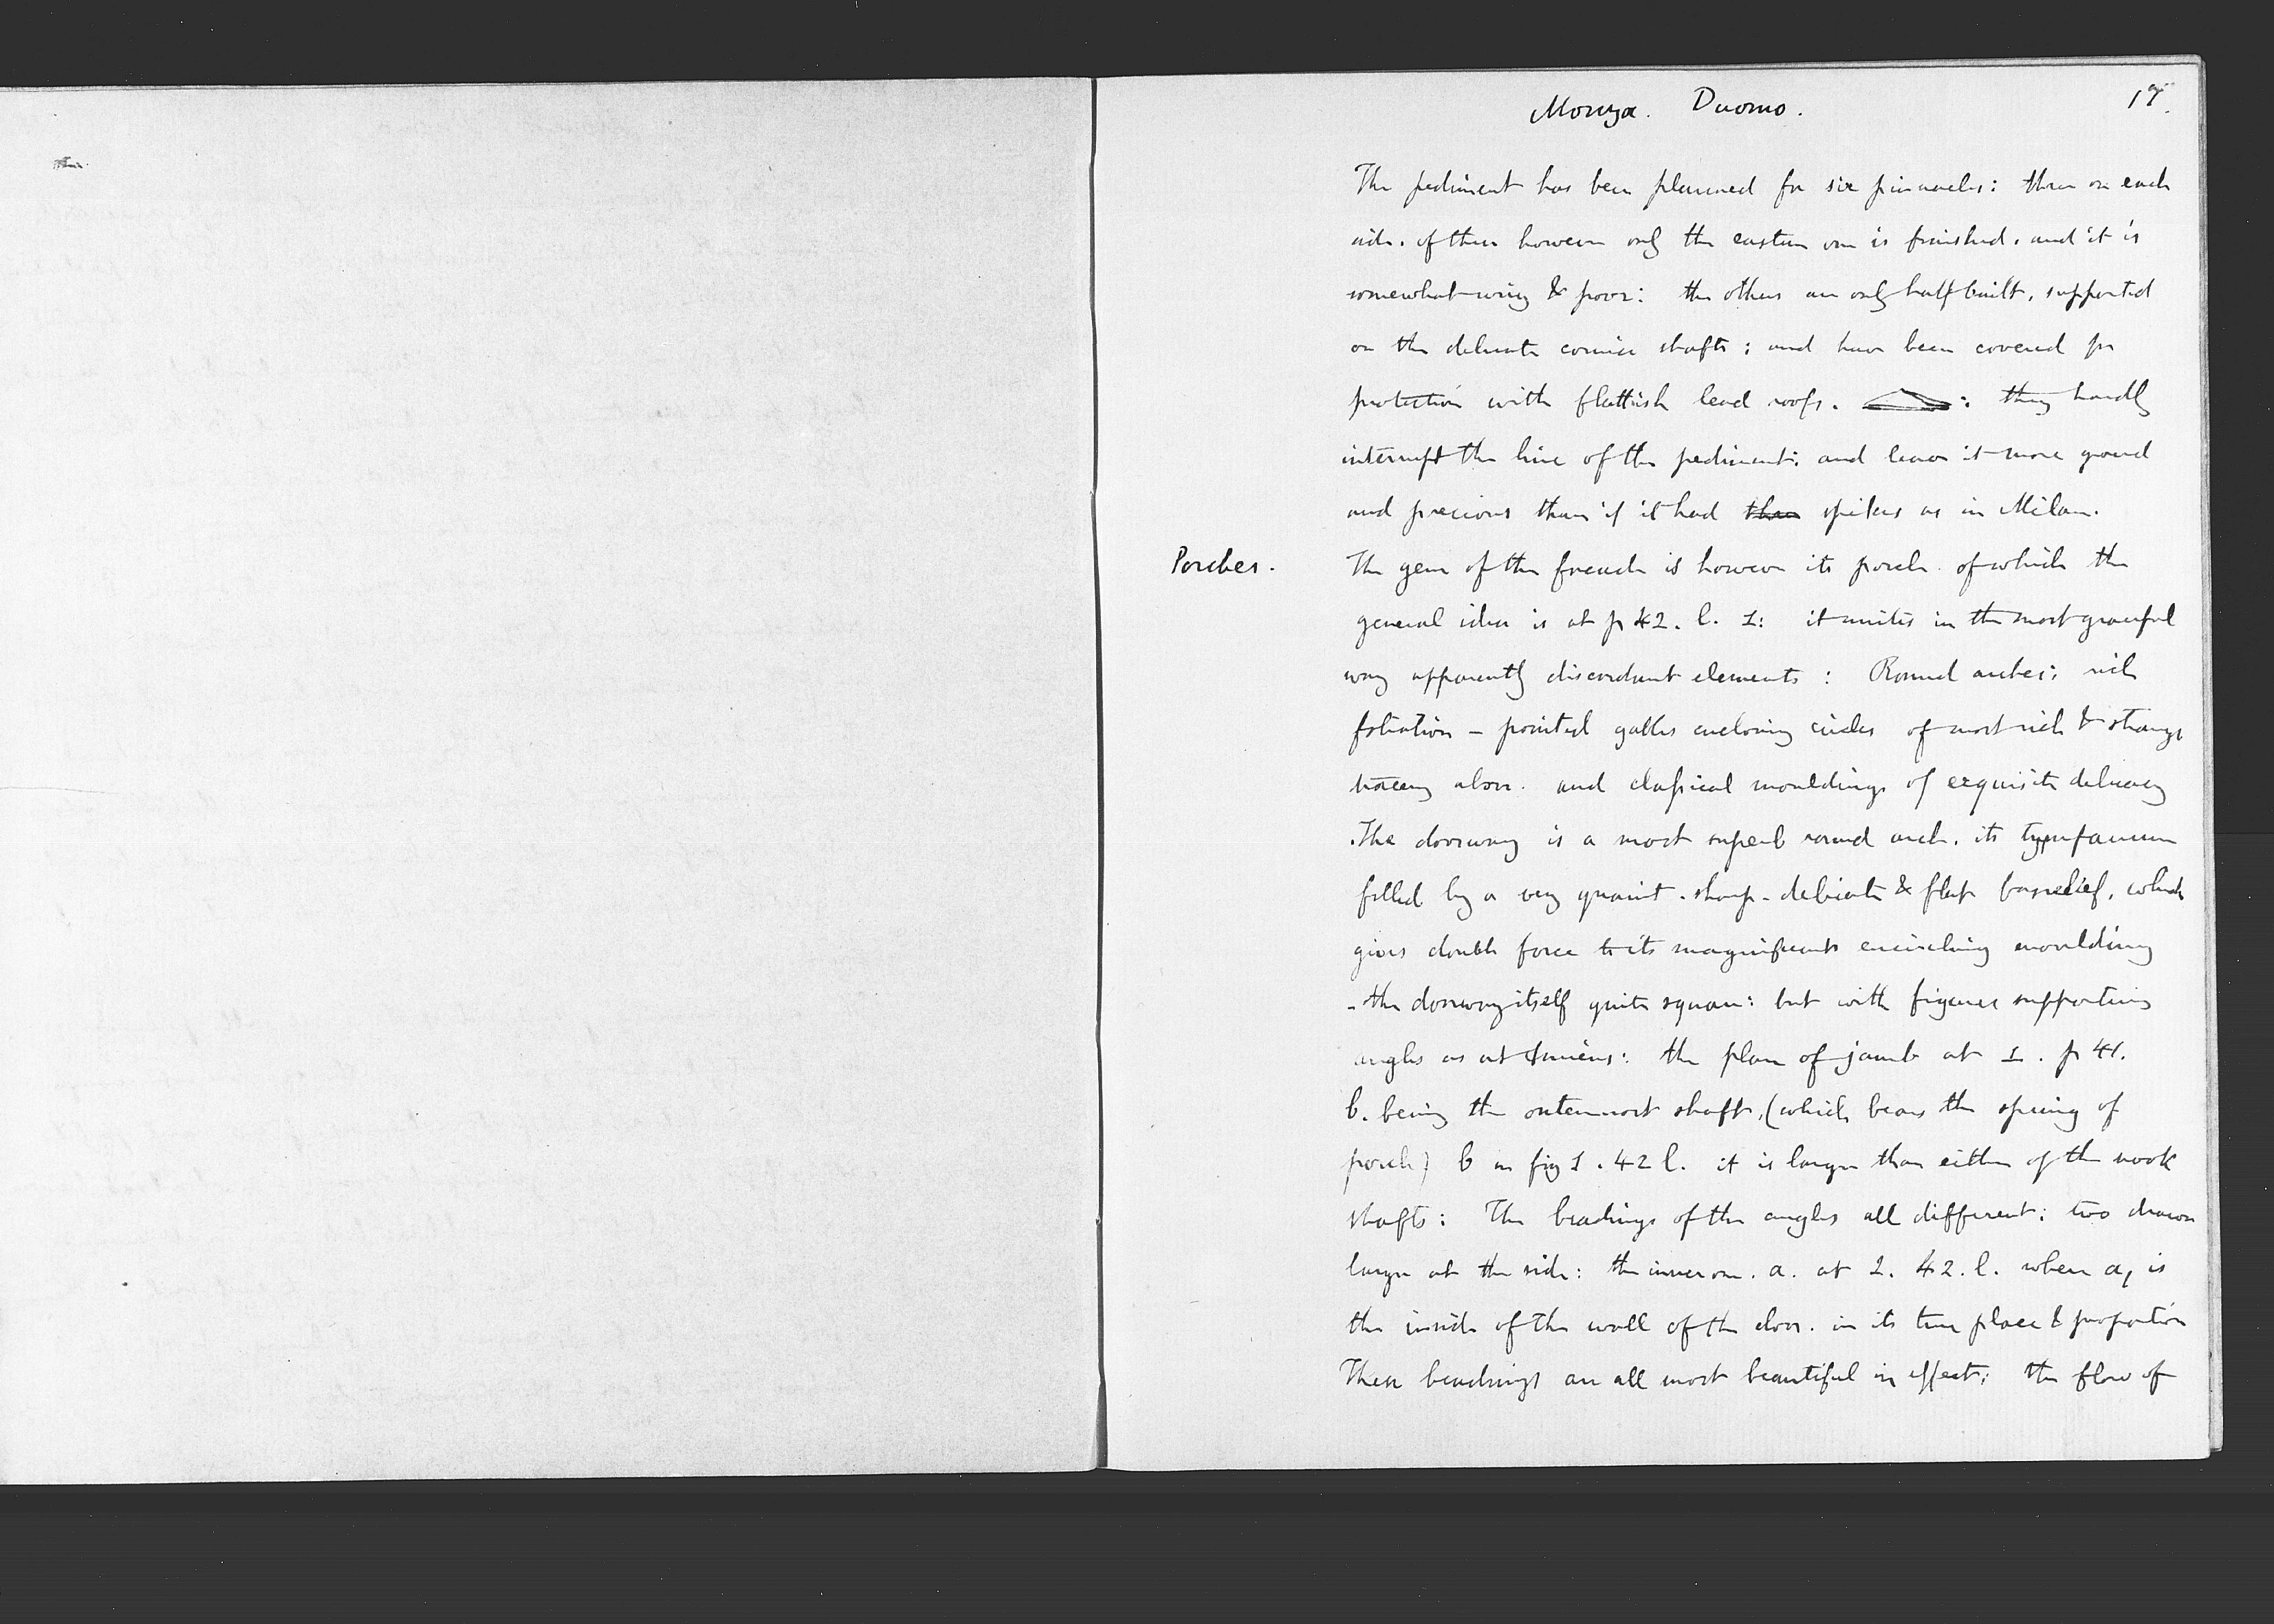 Monza. Duomo.
17.
The pediment has been planned for six pinnacles: three on each
side. of these however only the eastern one is finished, and it is
somewhat wiry & poor: the others are only half built, supported
on the delicate cornice shafts; and have been covered for
protection with flattish lead roofs. : they hardly
interrupt the line of the pediment; and leave it more grand
and precious than if it had three spikes as in Milan.
Porches.
The gem of the facade is however its porch. of which the
general idea is at p 42. l. 1: it unites in the most graceful
way apparently discordant elements: Round arches; rich
foliation - pointed gables enclosing circles of most rich & strange
tracery above. and classical mouldings of exquisite delicacy
The doorway is a most superb round arch. its tympanum
filled by a very quaint. sharp. delicate & flat basrelief, which
gives double force to its magnificent encircling moulding
- the doorway itself quite square: but with figures supporting
angles as at Amiens: the plan of jamb at 1. p 41.
b. being the outermost shaft, (which bears the spring of
porch) b in fig 1. 42 l. it is larger than either of the nook
shafts: The beadings of the angles all different: two drawn
large at the side: the inner one. a. at 2. 42. l. where a, is
the inside of the wall of the door. in its true place & proportion
These beadings are all most beautiful in effect; the flow of